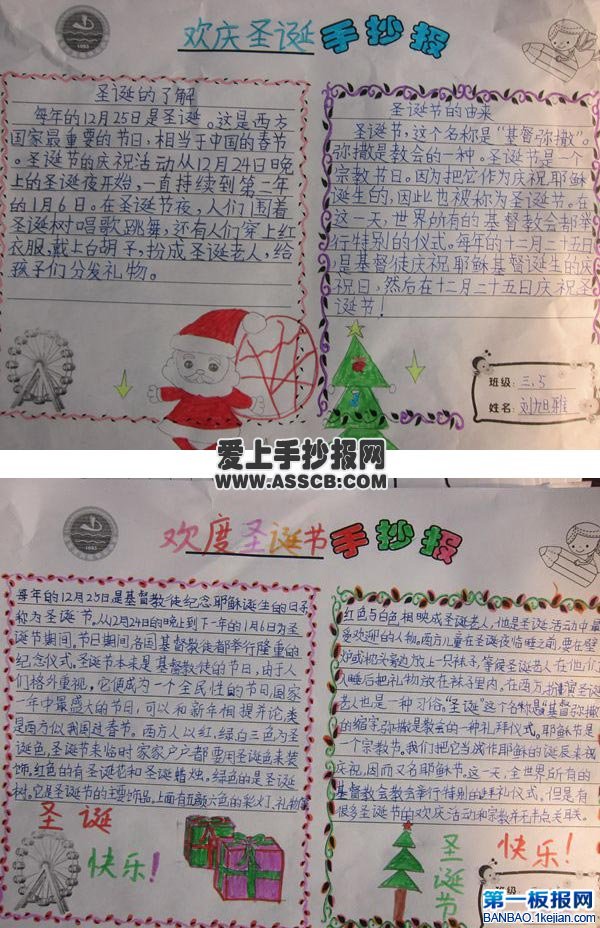 欢庆圣诞手抄报
圣诞的了解
每年的12月25日是圣诞。这是西方
国家最重要的节日,相当于中国的春节
。圣诞节的庆祝活动从12月24日晚
上的圣诞夜开始,一直持续到第二年
的1月6日。在圣诞节夜,人们围着
圣诞树唱歌跳舞,还有人们穿上红
衣服,戴上白胡子,扮成圣诞老人,给
孩子们分发礼物。
圣诞节的由来
圣诞节,这个名称是“基督弥撒”。
弥撒是教会的一种。圣诞节是一个
宗教节日。因为把它作为庆祝耶稣
诞生的,因此也被称为圣诞节。在
这一天,世界所有的基督教会都举
行特别的仪式。每年的十二月二十五日
是基督徒庆祝耶稣基督诞生的庆
祝日,然后在十二月二十五日庆祝圣
诞节!
班级:三.5
姓名:刘旭雅
爱上手抄报网
WWW.ASSCB.COM
欢度圣诞节手抄报
每年的12月25日是基督教徒纪念耶稣诞生的日子
称为圣诞节。从12月24日的晚上到下一年的1月6日为圣
诞节期间。节日期间各国基督教徒都举行隆重的
纪念仪式。圣诞节本来是基督教徒的节日,由于人
们格外重视,它便成为一个全民性的节日国家
一年中最盛大的节日,可以和新年相提并论类
是西方似我国过春节。西方人以红,绿白三色为圣
诞色,圣诞节来临时家家户户都要用圣诞色来装
饰。红色的有圣诞花和圣诞蜡烛。绿色的是圣诞
树。它是圣诞节的主要饰品。上面有五颜六色的彩灯、礼物
圣诞
快乐!
红色与白色相映成圣诞老人,他是圣诞活动中最
受欢迎的人物。西方儿童在圣诞夜临睡之前,要在壁
炉或枕头旁边放上一只袜子,等候圣诞老人在他们
入睡后把礼物放在袜子里内。在西方,扮演圣诞
老人也是一种习俗。“圣诞”这个名称是基督弥撒
的缩字弥撒是教会的一种礼拜仪式。耶稣节是
一个宗教节。我们把它当成作耶稣的诞辰来祝
庆祝,因而又名耶稣节。这一天,全世界所有的
基督教会教会举行特别的拜礼仪式。但是有
很多圣诞节的欢庆活动和宗教并无半点关联。
圣诞节
快乐!
班级
第一板报网
BANBAO.1kejian.com